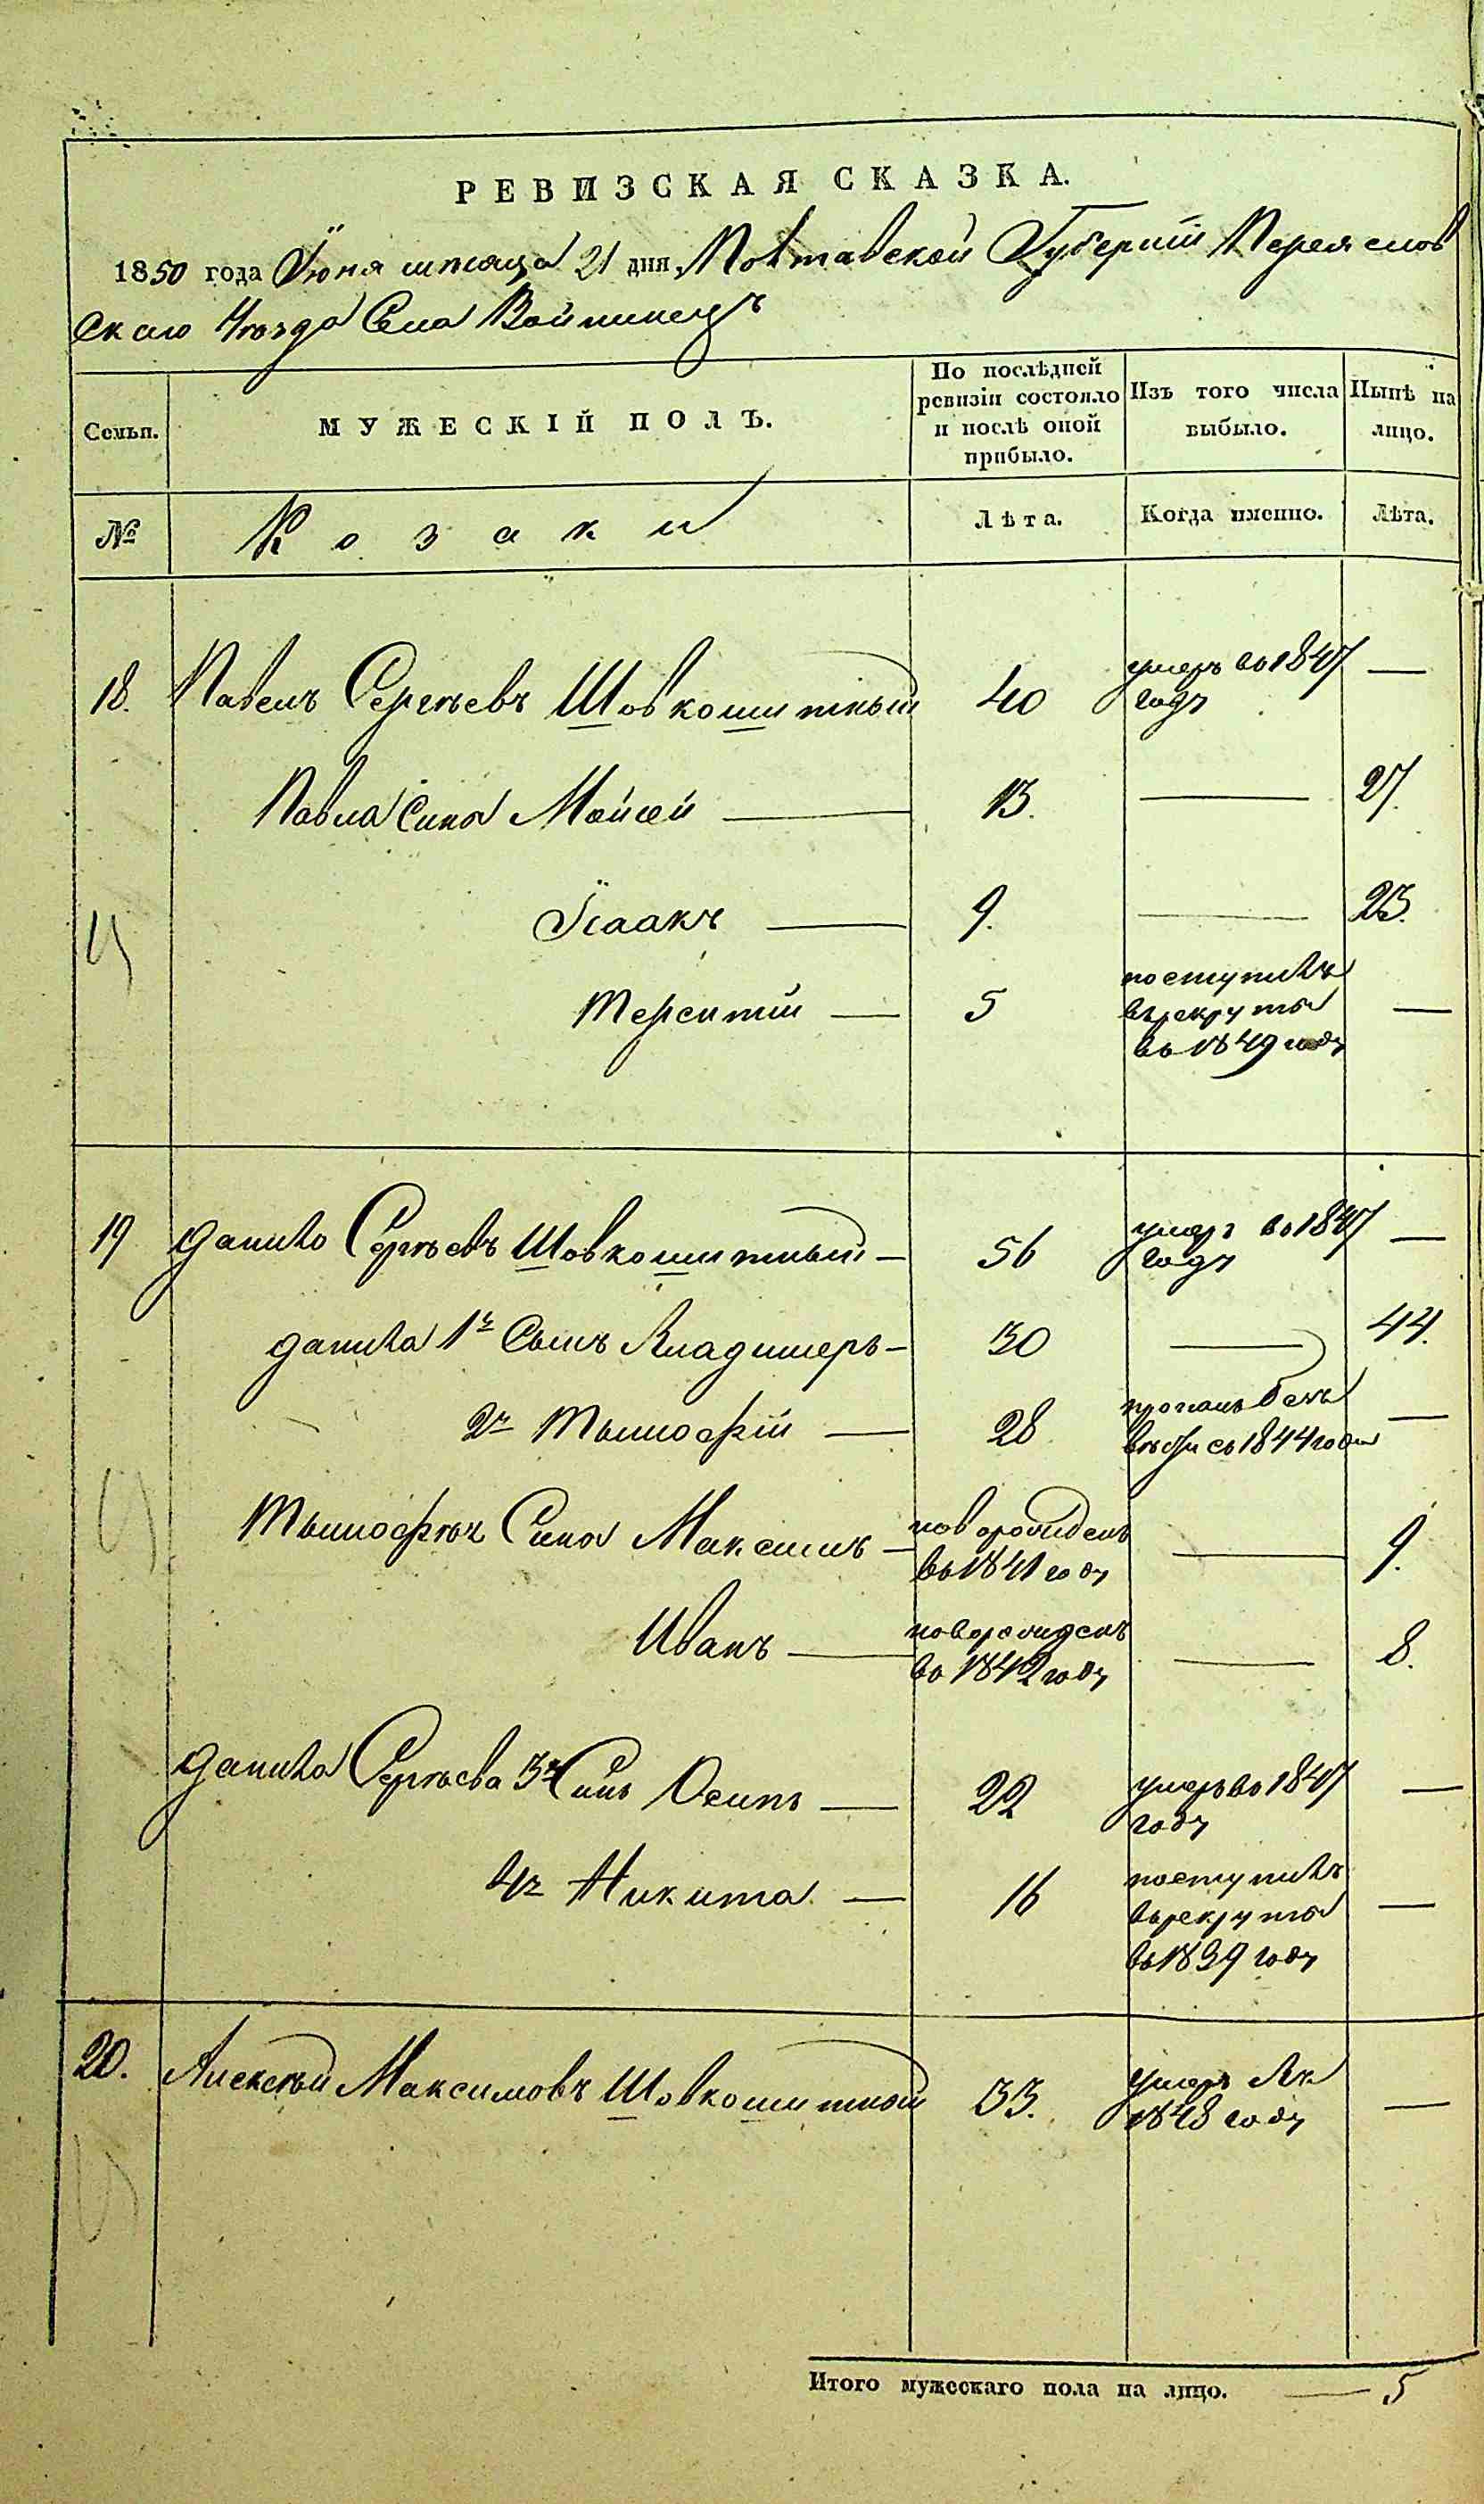 РЕВИЗСКАЯ СКАЗКА.
1850 года Іюня мѣсяца 21 дня, Полтавской Губерніи Переяслов
скаго Уѣзда Села Войтовецъ
Семьи. МУЖЕСКІЙ ПОЛЪ. По послѣдней ревизіи состояло и послѣ оной прибыло. Изъ того числа выбыло. Нынѣ на лицо.
№ Козаки Лѣта. Когда именно. Лѣта.
18. Павелъ Сергѣевъ Шовкошитный 40 умеръ въ 1847 —
году
Павла Сина Мойсей — 13. — 27.
Ісаакъ — 9. — 23.
Терентій — 5 поступилъ —
въ рекруты
въ 1849 году
19 Данило Сергѣевъ Шовкошитный — 56 умеръ въ 1847 —
году
Данила 1й Сынъ Владимеръ — 30 — 44.
2й Тымофій — 28 пропалъ безъ —
вѣсти съ 1844 года
Тымофѣя Сина Максимъ — новорожденъ — 9.
въ 1841 году
Иванъ — новорожденъ — 8.
въ 1842 году
Данила Сергѣева 3й Синъ Осипъ — 22 умеръ въ 1847 —
году
4й Никита — 16 поступилъ —
въ рекруты
въ 1839 году
20. Алексѣй Максимовъ Шовкошитной 33. умеръ въ —
1848 году
Итого мужескаго пола на лицо. — 5